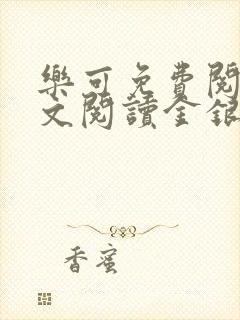 樂可免費閱
文閱讀金銀
香蜜